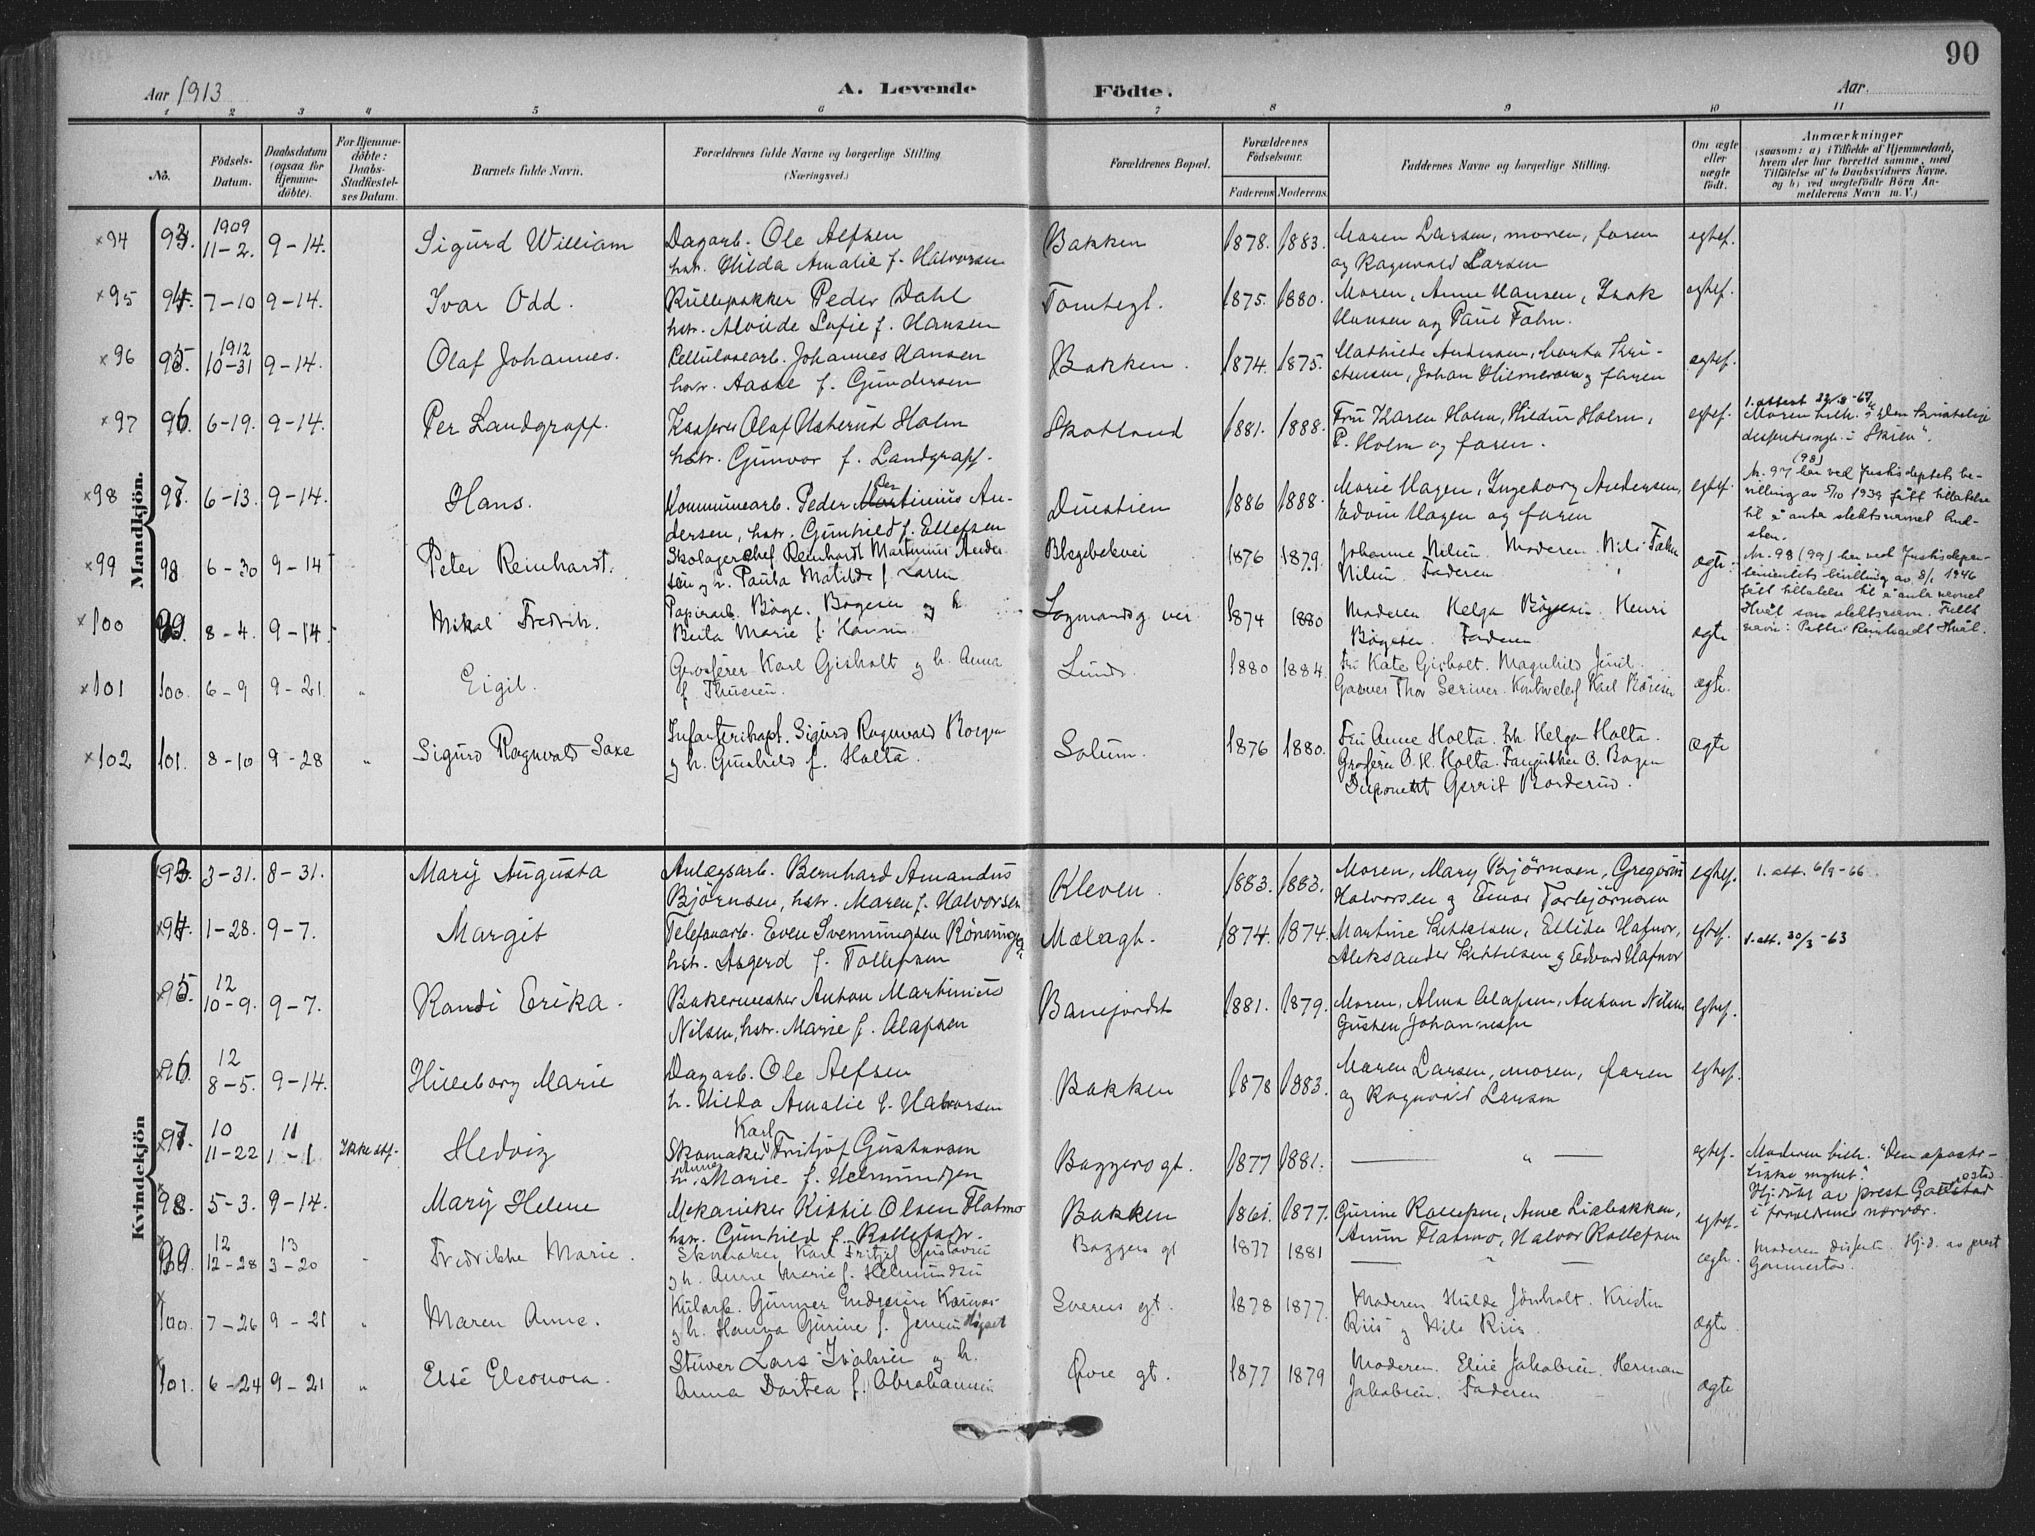 90
Aar 1913
A. Levende
Födte.
Aar.
1 2 3 4 5 6 7 8 9 10 11
No.
Födsels-
Datum.
Daabsdatum
(ogsaa for
Hjemme-
döbte).
For Hjemme-
döbte:
Daabs-
Stadfæstel-
ses Datum.
Barnets fulde Navn.
Forældrenes fulde Navne og borgerlige Stilling
(Næringsvei.)
Forældrenes Bopæl.
Forældrenes
Födselsaar.
Faderens Moderens.
Faddernes Navne og borgerlige Stilling.
Om ægte
eller
uægte
födt.
Anmærkninger
(saasom: a) i Tilfælde af Hjemmedaab,
hvem der har forrettet samme, med
Tilföielse af to Daabsvidners Navne,
og b) ved uægtefödte Börn An-
melderens Navn m. V.)
Mandkjön.
×94 93. 1909 11-2. 9-14. Sigurd William
Dagarb. Ole Alfsen
hstr. Hilda Amalie f. Halvorsen
Bakken 1878. 1883.
Maren Larsen, moren, faren
og Ragnvald Larsen
egtef.
×95 94. 7-10 9-14. Ivar Odd.
Rullepakker Peder Dahl
hstr. Alvilde Sofie f. Hansen
Tomtegt. 1875. 1880.
Moren, Anne Hansen, Isak
Hansen og Paul Fahn.
egtef.
×96 95. 1912 10-31 9-14. Olaf Johannes.
Cellulosearb. Johannes Hansen
hstr. Aaste f. Gundersen
Bakken. 1874. 1875.
Mathilde Andersen, Marta Kri-
stensen, Johan Hilmersen og faren
egtef.
×97 96. 6-19. 9-14. Per Landgraff.
Kasserer Olaf Usterud Holm
hstr. Gunvor f. Landgraff.
Skotland 1881. 1888.
Fru Karen Holm, Hildur Holm,
P. Holm og faren.
egtef.
1. attest 22/8-67
Moren tilh. "Den kristelige
dissentermgh. i Skien".
×98 97. 6-13. 9-14. Hans.
Kommunearb. Peder Martinius An-
dersen, hstr. Gunhild f. Ellefsen
Duestien 1886 1888.
Marie Hagen, Ingeborg Andersen,
Edvin Hagen og faren
egtef.
(98)
Nr. 97 har ved Justisdeptets be-
villing av 5/10 1939 fått tillatelse
til å anta slektsnavnet
×99 98 6-30 9-14 Peter Reinhardt.
Skolagerchef Reinhardt Martinius Ander-
sen og h. Paula Matilde f. Larsen
Blegebekvei 1876 1879.
Johanne Nilsen. Moderen. Nils Fahn
Nilsen. Faderen
ægte.
Nr. 98 (99) har ved Justisdepar-
tementets bevilling av 8/1 1946
fått tillatelse til å anta navnet
Hvål som slektsnavn. Fullt
navn: Petter Reinhardt Hvål.
×100 99 8-4. 9-14 Mikal Fredrik.
Papirarb. Børge Bøgesen og h.
Berta Marie f. Hansen
Lagmandsg. vei 1874 1880
Moderen Helga Bøgesen. Henri
Bøgesen. Faderen
ægte
×101 100 6-9 9-21 " Eigil.
Grosserer Karl Gisholt og h. Anna
f. Thuesen.
Lunde 1880 1884
Fru Kate Gisholt. Magnhild Juul.
Garver Thor Scriver. Kontorchef Karl
ægte.
×102 101. 8-10 9-28 " Sigurd Ragnvald Saxe
Infanterikapt. Sigurd Ragnvald Borgen
og h. Gunhild f. Holta.
Solum. 1876 1880.
Fru Anne Holta. Frk. Helga Holta.
Grosserer O. H. Holta. O. Borgen
Gerrit Borderud.
ægte
Kvindekjön
×93. 3-31. 8-31. Mary Augusta
Anlægsarb. Bernhard Amandus
Bjørnsen, hstr. Maren f. Halvorsen
Kleven. 1883. 1883.
Moren, Mary Bjørnsen, Gregorius
Halvorsen og Einar Torbjørnsen
egtef.
1. att. 6/9-66
×94. 1-28. 9-7. Margit
Telefonarb. Even Svenningsen Rønningen
hstr. Asgerd f. Tollefsen
Mælagt. 1874. 1874.
Martine Kittelsen, Ellida Hafnor,
Aleksander Kittelsen og Edvard Hafnor
egtef.
1. att. 30/3-63
×95. 12 10-9. 9-7. Randi Erika.
Bakermester Anton Martinius
Nilsen, hstr. Marie f. Olafsen
Banefjordst 1881. 1879.
Moren, Alma Olafsen, Anton Nilsen
Gusten Johannessen
egtef.
×96. 12 8-5. 9-14. Hilleborg Marie
Dagarb. Ole Alfsen
h. Hilda Amalie f. Halvorsen
Bakken 1878 1883.
Maren Larsen, moren, faren
og Ragnvald Larsen
egtef.
×97. 10 11-22 11 1-1 Ikke stf. Hedvig
Karl
Skomaker Fritjof Gustavsen
h. Anne Marie f. Helmundsen
Baggersgt. 1877 1881.
— " —
egtef.
Moderen tilh. "Den aposto-
liske mghet".
Hj.døbt av prest
i foreldrenes nærvær.
×98. 5-3. 9-14. Mary Helene
Mekaniker Kittil Olsen Flatmo
hstr. Gunhild f. Rollefsdr.
Bakken 1861. 1877.
Gurine Rollefsen, Anne Liabakken,
Flatmo, Halvor Rollefsen
egtef.
×99. 12 12-28 13 3-20 " Fredrikke Marie.
Skomaker Karl Fritjof Gustavsen
og h. Anne Marie f. Helmundsen
Baggers gt 1877 1881
— " —
ægte.
Moderen dissent. Hj.d. av prest
×100. 7-26 9-21 " Maren Anne.
Kularb. Gunner
og h. Hanna Gurine f. Jensen
Sverres gt. 1878 1877.
Moderen Hulda Jønholt. Kristen
Riis og Nils Riis.
ægte.
×101. 6-24 9-21 " Else Eleonora.
Stuver Lars Jakobsen og h.
Anna Dortea f. Abrahamsen
Øvre gt. 1877 1879
Moderen. Elise Jakobsen. Herman
Jakobsen. Faderen
ægte